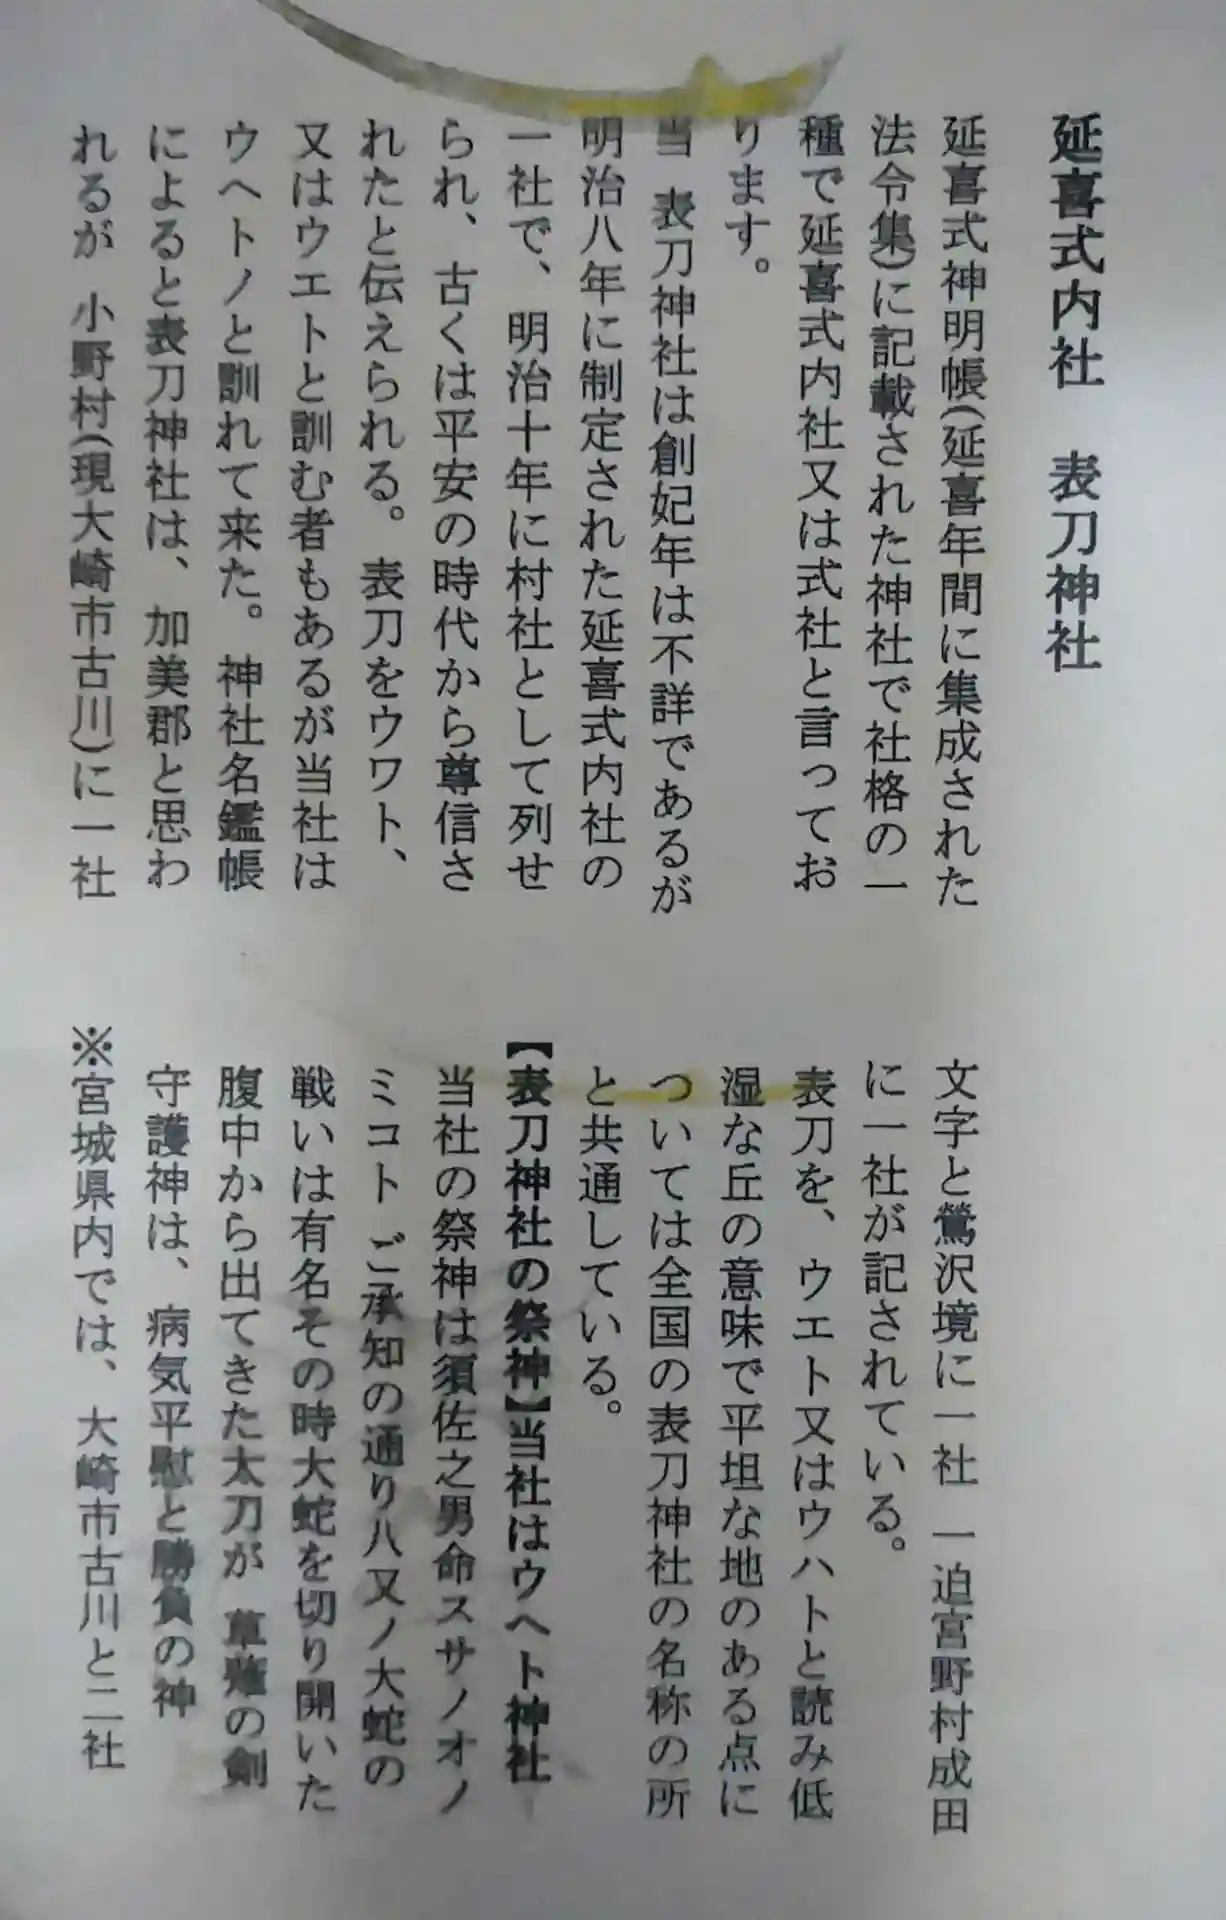 延喜式内社　表刀神社
延喜式神明帳(延喜年間に集成された
法令集)に記載された神社で社格の一
種で延喜式内社又は式社と言ってお
ります。
当 表刀神社は創妃年は不詳であるが
明治八年に制定された延喜式内社の
一社で、明治十年に村社として列せ
られ、古くは平安の時代から尊信さ
れたと伝えられる。表刀をウワト、
又はウエトと訓む者もあるが当社は
ウヘトノと訓れて来た。神社名鑑帳
によると表刀神社は、加美郡と思わ
れるが 小野村(現大崎市古川)に一社
文字と鶯沢境に一社 一迫宮野村成田
に一社が記されている。
表刀を、ウエト又はウハトと読み低
湿な丘の意味で平坦な地のある点に
ついては全国の表刀神社の名称の所
と共通している。
【表刀神社の祭神】当社はウヘト神社
当社の祭神は須佐之男命スサノオノ
ミコト ご承知の通り八又ノ大蛇の
戦いは有名その時大蛇を切り開いた
腹中から出てきた太刀が 草薙の剣
守護神は、病気平慰と勝負の神
※宮城県内では、大崎市古川と二社